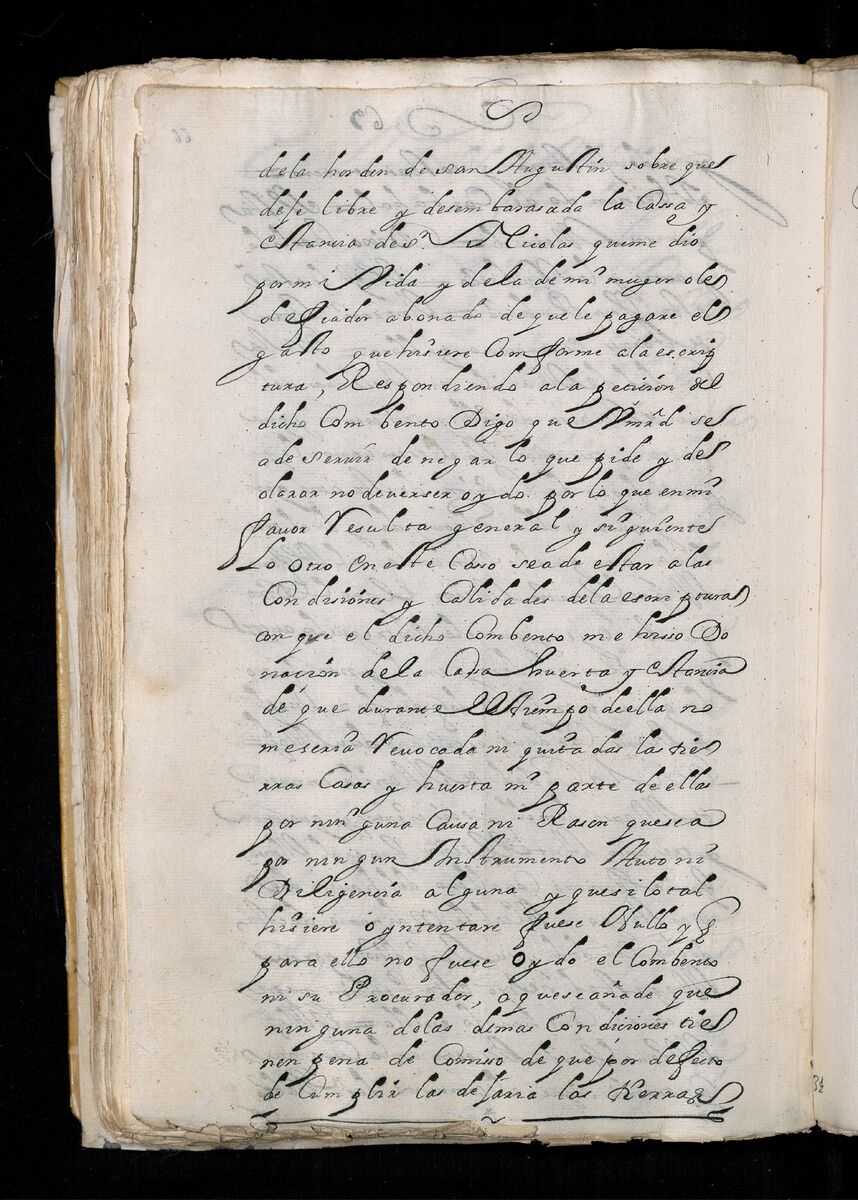 dela horden de san Augustin sobre que
deje libre y desembarasada la Cassa y
estancia de sn. Nicolas queme dio
por mi Vida y dela de mi muger ole
de fiador abonado de que le pagare el
gasto que hisiere Comforme ala escrip
tura, Respondiendo ala peticion del
dicho Combento Digo que Vmrd se
ade seruir de negar lo que pide y de
clarar no dever ser oydo por lo que en mi
fauor Resulta general y siguiente
Lo otro en este Casso seade estar alas
Condisiones y Calidades dela escripturas
con que el dicho Combento me hisso Do
nacion dela Casa huerta y estancia
de que durante el tiempo de ella no
me seria Revocada ni quitadas las tie
rras Casas y huerta ni parte de ellas
por ninguna Causa ni Rason quesea
por ningun Instrumento Auto ni
Diligencia alguna y que si lo tal
hisiere o yntentare fuese Nullo y q
para ello no fuese Oydo el Combento
ni su Procurador, a que se añade que
ninguna delas demas Condiciones tie
nen pena de Comisso de que por defecto
de Cumplir las dejaria las tierras